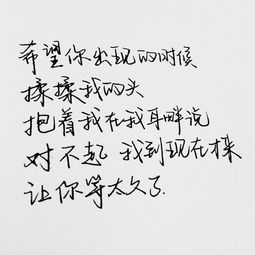 希望你出现的时候
揉揉我的头
抱着我在我耳畔说
对不起 我到现在才
让你等太久了.